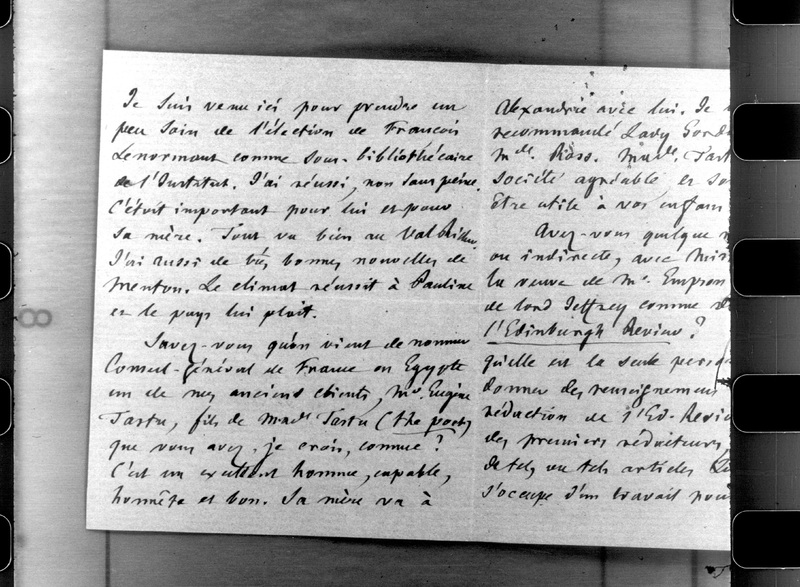 Je suis venu ici pour prendre un
peu soin de l'élection de François
Lenormant comme sous-bibliothécaire
de l'Institut. J'ai réussi, non sans peine.
C'étoit important pour lui et pour
sa mère. Tout va bien au Val Richer.
J'ai aussi de très bonnes nouvelles de
Menton. Le climat réussit à Pauline
et le pays lui plait.
Savez-vous qu'on vient de nommer
Consul-général de France en Egypte
un de mes anciens clients, Mr. Eugène
Tastu, fils de Made Tastu (the poet)
que vous avez, je crois, connue?
C'est un excellent homme, capable,
honnête et bon. Sa mère va à
Alexandrie avec lui. Je
recommandé Lady Gord
Mde. Ross. Made. Tast
société agréable, et
être utile à vos enfans
Avez-vous quelque
ou indirecte, avec
la veuve de Mr. Empson
de lord Jeffrey comme
l'Edinburgh Review?
qu'elle est la seule person
donner des renseignemens
rédaction de l'Ed. Revie
des premiers rédacteurs,
de tels ou tels articles
s'occupe d'un travail
8